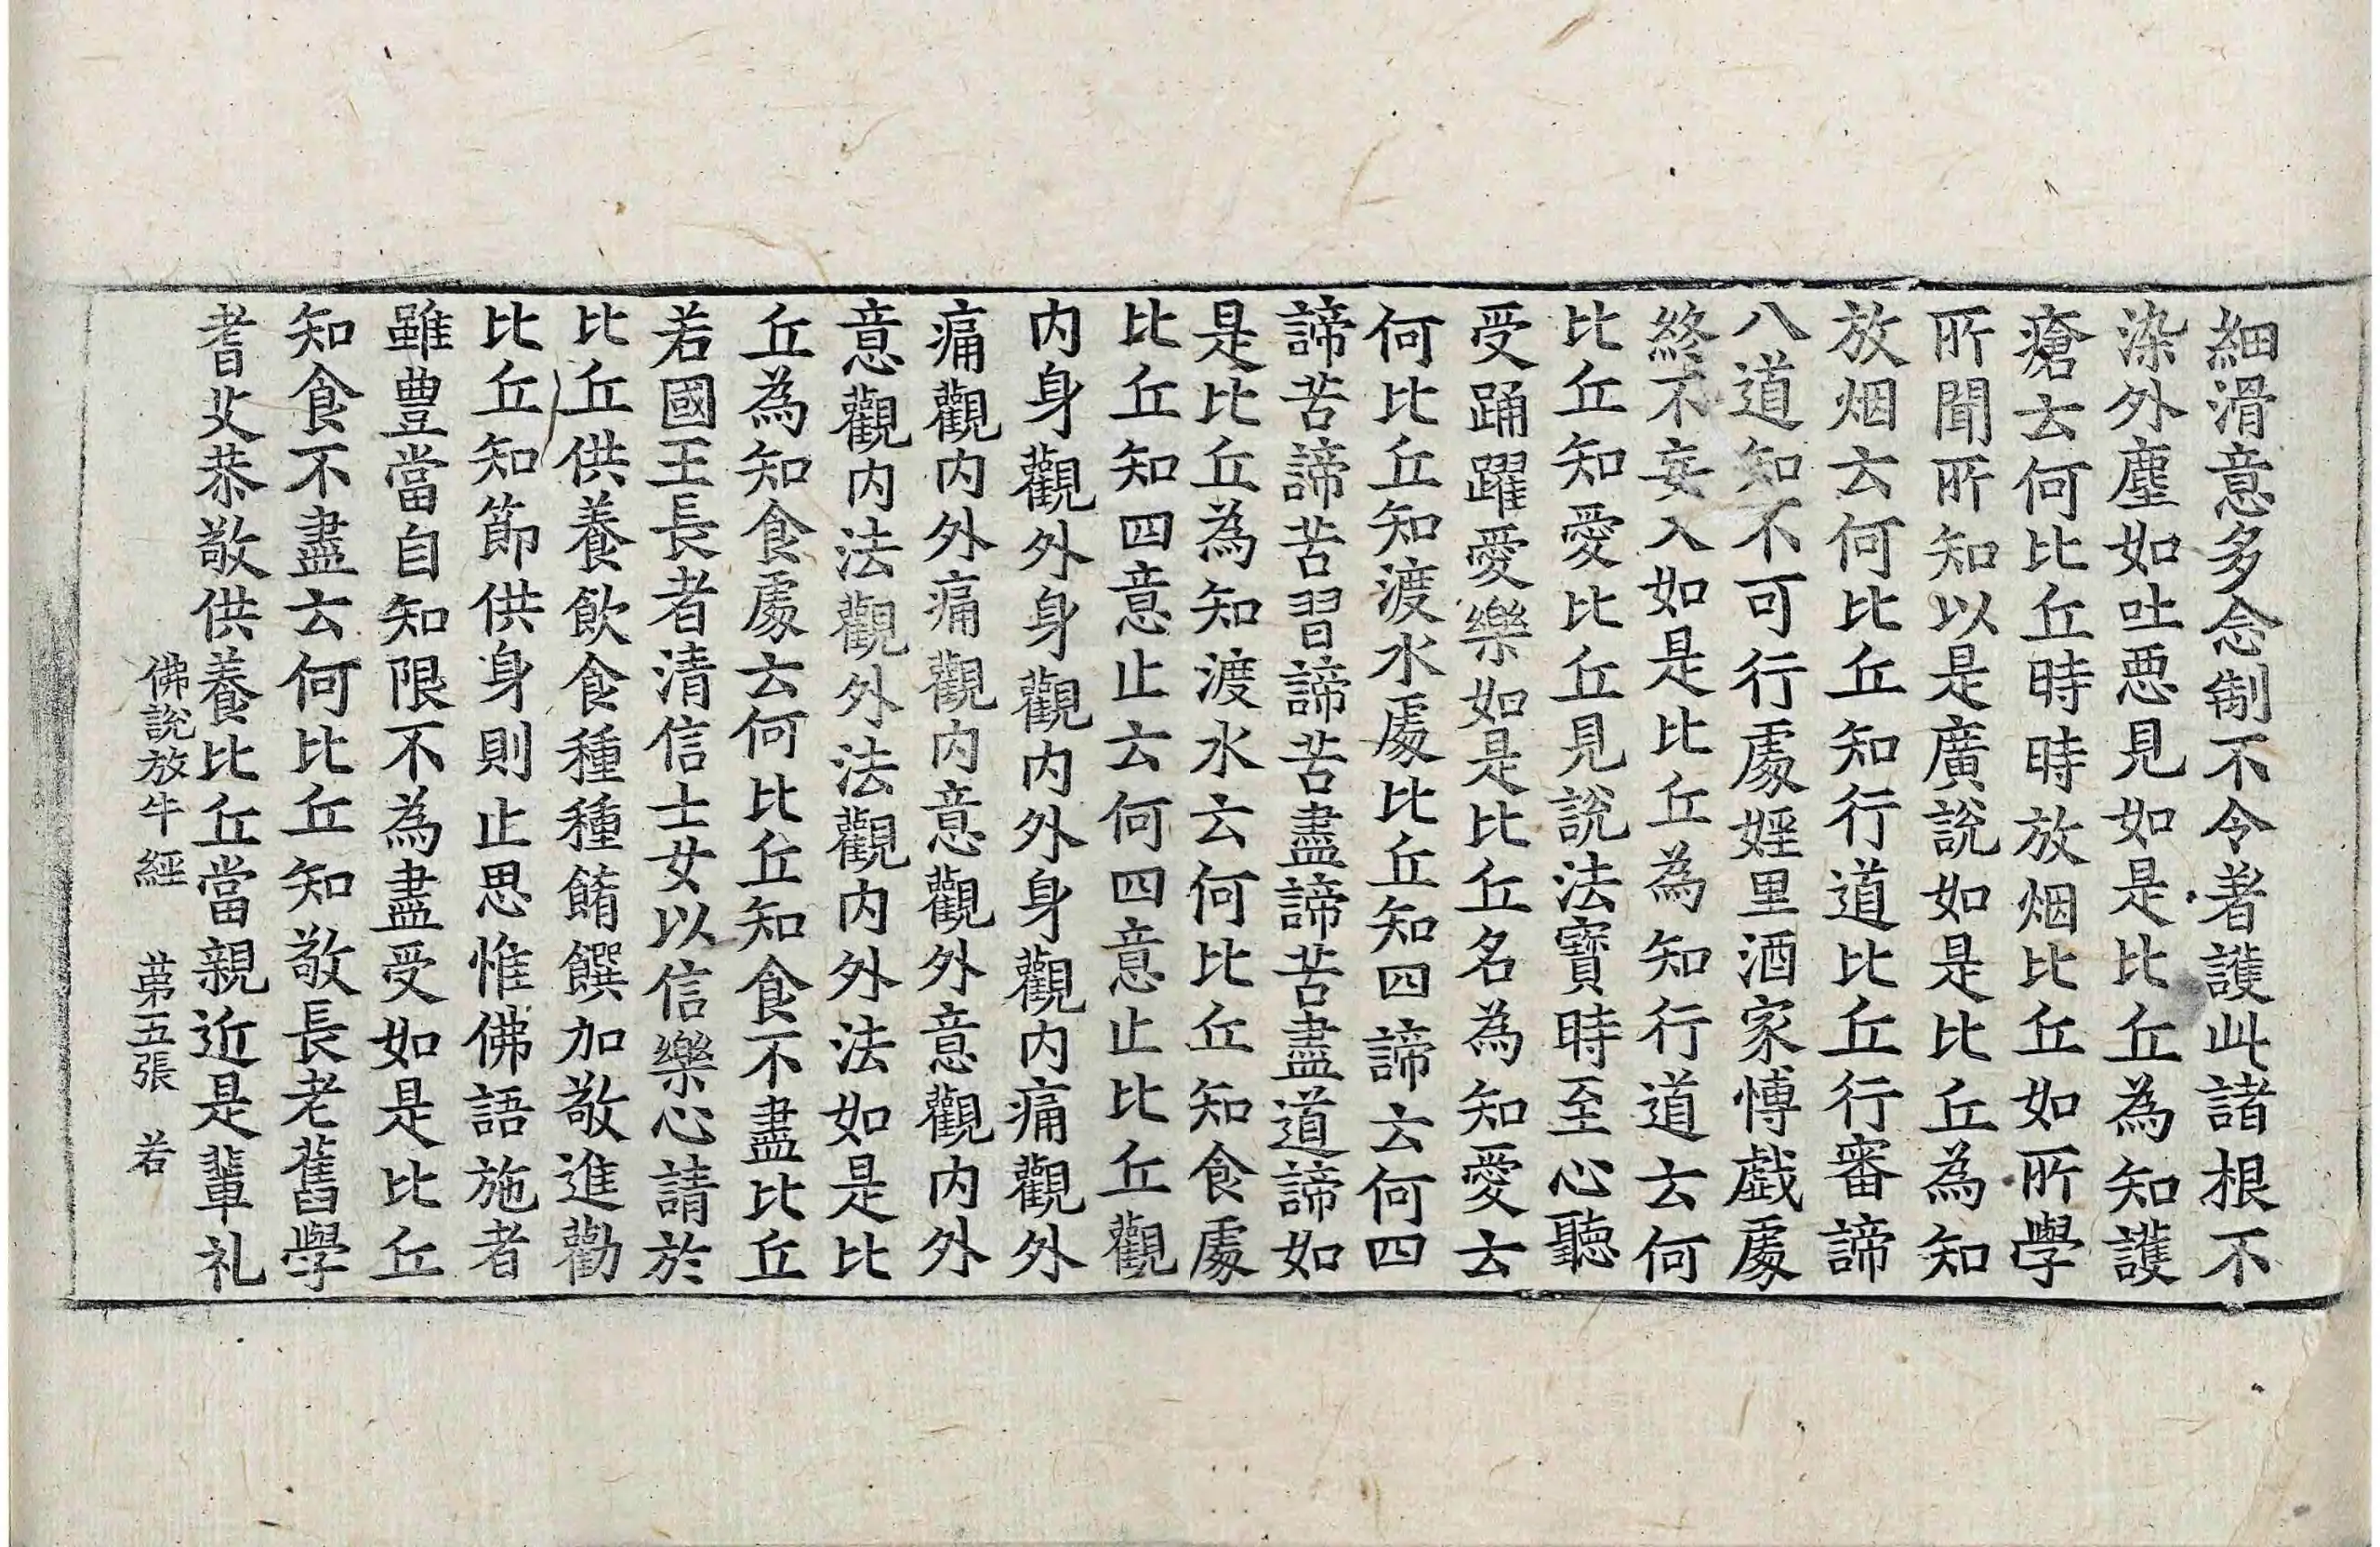 細滑意多念制不令著護此諸根不
染外塵如吐惡見如是比丘為知護
瘡云何比丘時時放烟比丘如所學
所聞所知以是廣說如是比丘為知
放烟云何比丘知行道比丘行審諦
八道知不可行處婬里酒家博戲處
終不妄入如是比丘為知行道云何
比丘知愛比丘見說法寶時至心聽
受踊躍愛樂如是比丘名為知愛云
何比丘知渡水處比丘知四諦云何四
諦苦諦苦習諦苦盡諦苦盡道諦如
是比丘為知渡水云何比丘知食處
比丘知四意止云何四意止比丘觀
内身觀外身觀内外身觀内痛觀外
痛觀内外痛觀内意觀外意觀内外
意觀内法觀外法觀内外法如是比
丘為知食處云何比丘知食不盡比丘
若國王長者清信士女以信樂心請於
比丘供養飲食種種餚饌加敬進勸
比丘知節供身則止思惟佛語施者
雖豊當自知限不為盡受如是比丘
知食不盡云何比丘知敬長老舊學
耆艾恭敬供養比丘當親近是輩礼
佛說放牛經　第五張　若